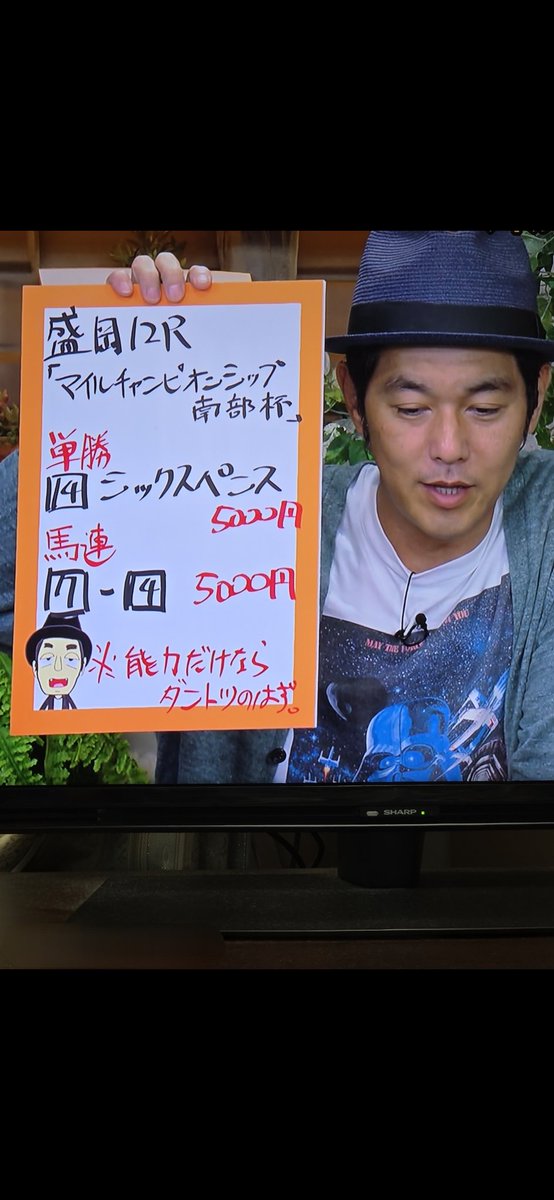 盛岡12R
「マイルチャンピオンシップ
南部杯」
単勝
14 シックスペンス
5000円
馬連
7-14 5000円
※能力だけなら
ダントツのはず。
MAY THE FORCE BE WITH YOU
SHARP